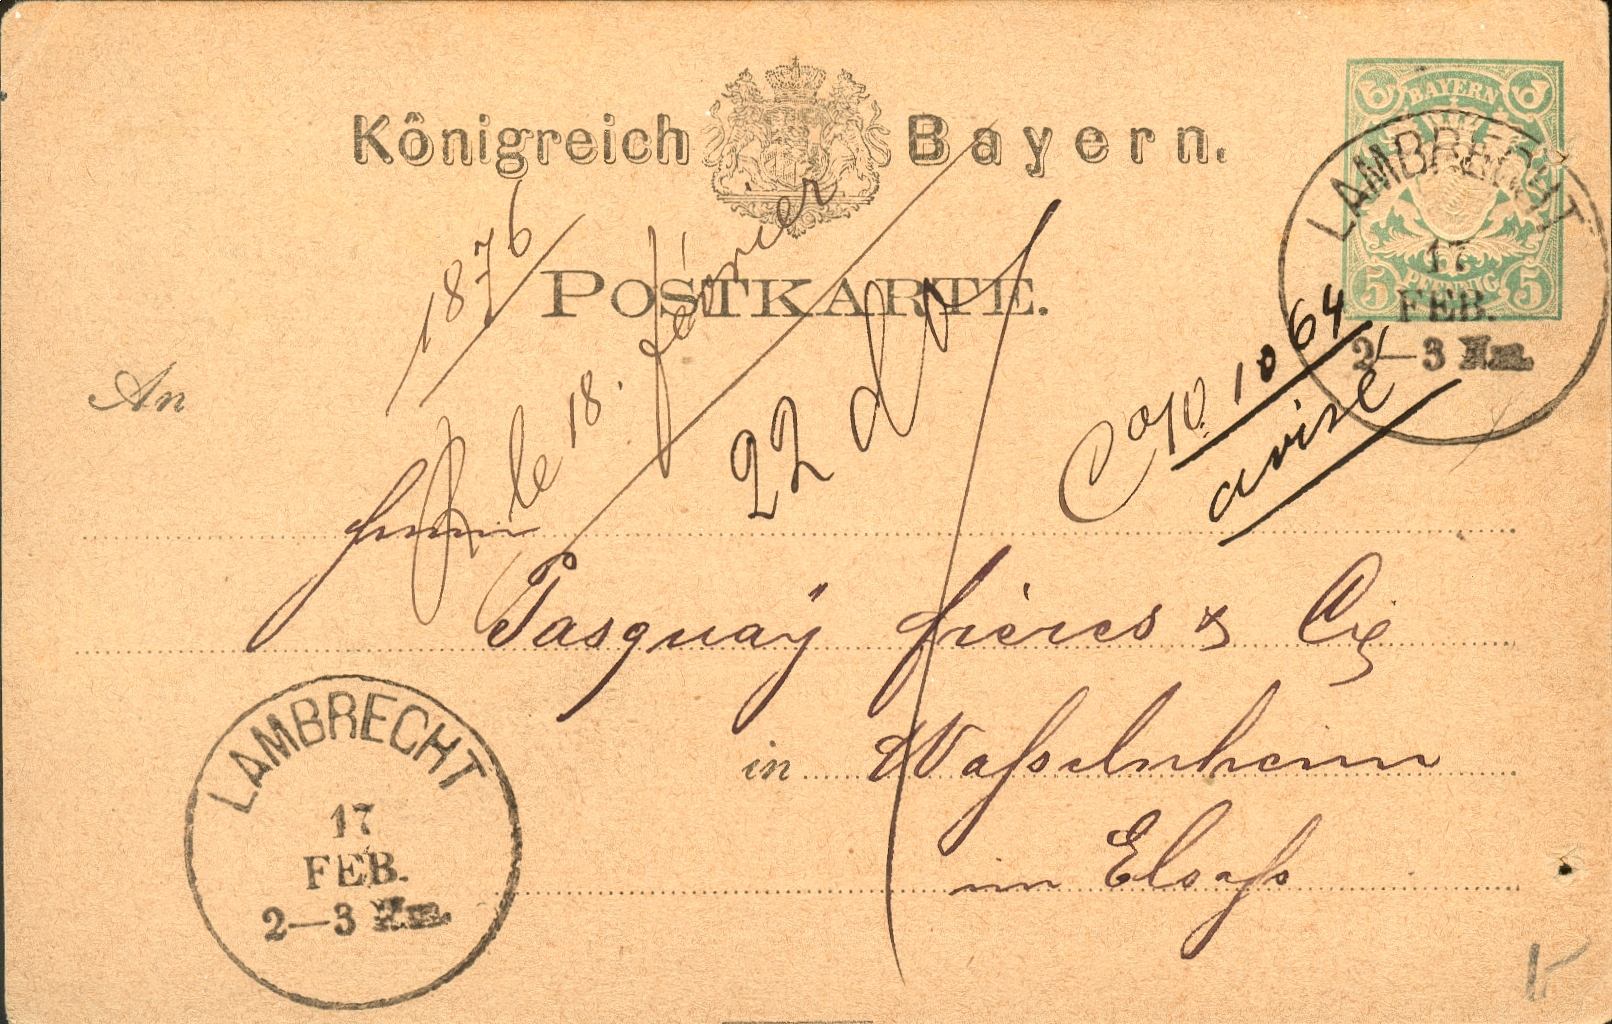 Königreich Bayern.
BAYERN
5 PFENNIG 5
LAMBRECHT
17
FEB.
2—3 Nm.
POSTKARTE.
1876
le 18. février
22 do
Cop. 1064
avisé
An
Herrn
Pasquaÿ frères & Cie
in Waſselnheim
im Elsaſs
LAMBRECHT
17
FEB.
2—3 Nm.